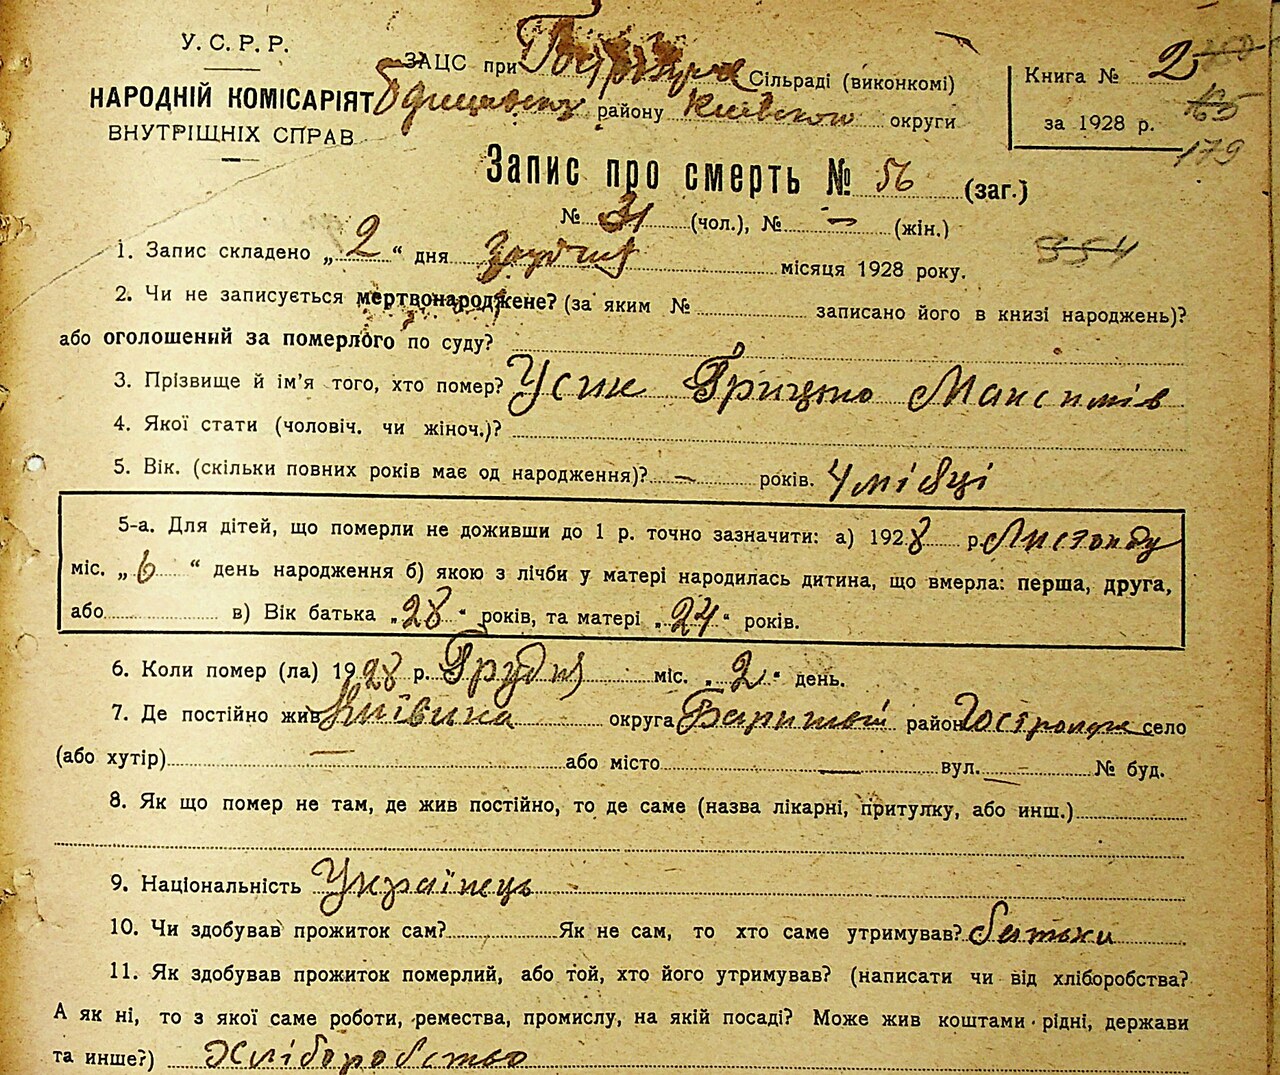 У. С. Р. Р.
НАРОДНІЙ КОМІСАРІЯТ
ВНУТРІШНІХ СПРАВ
ЗАЦС при Сільраді (виконкомі)
району Київської округи
Книга № 2
за 1928 р.
179
Запис про смерть № 56 (заг.)
№ 31 (чол.), № — (жін.)
354
1. Запис складено „ 2 “ дня Грудня місяця 1928 року.
2. Чи не записується мертвонароджене? (за яким № записано його в книзі народжень)?
або оголошений за померлого по суду?
3. Прізвище й ім’я того, хто помер? Усик Грицько Максимів
4. Якої стати (чоловіч. чи жіноч.)?
5. Вік. (скільки повних років має од народження)? — років. 4 місяці
5-а. Для дітей, що померли не доживши до 1 р. точно зазначити: а) 1928 р. Листопаду
міс. „ 6 “ день народження б) якою з лічби у матері народилась дитина, що вмерла: перша, друга,
або в) Вік батька „ 28 “ років, та матері „ 24 “ років.
6. Коли помер (ла) 1928 р. Грудня міс. „ 2 “ день.
7. Де постійно жив Київська округа район село
(або хутір) — або місто — вул. — № буд.
8. Як що помер не там, де жив постійно, то де саме (назва лікарні, притулку, або инш.)
9. Національність Українець
10. Чи здобував прожиток сам? Як не сам, то хто саме утримував? батьки
11. Як здобував прожиток померлий, або той, хто його утримував? (написати чи від хліборобства?
А як ні, то з якої саме роботи, ремества, промислу, на якій посаді? Може жив коштами рідні, держави
та инше?) Хліборобство